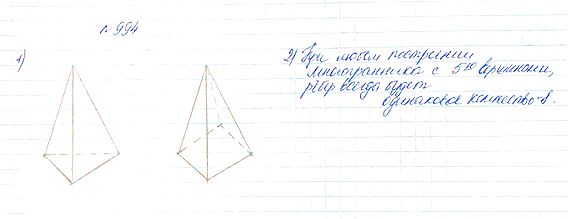 № 994
1)
2) При любом построении
многогранника с 5ю вершинами,
рёбер всегда будет
одинаковое количество - 8.